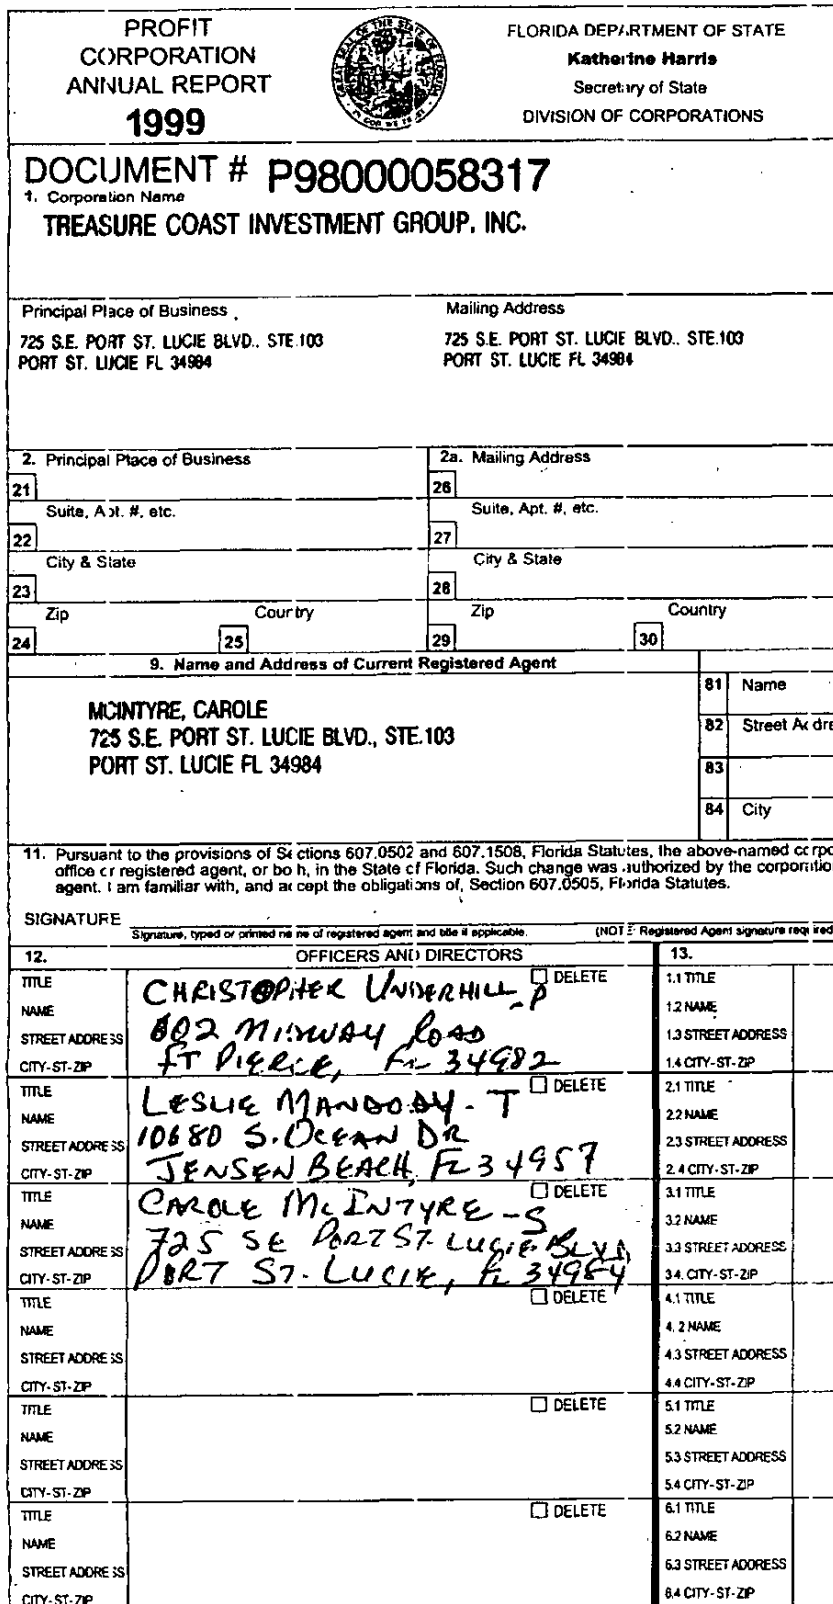 PROFIT
CORPORATION
ANNUAL REPORT
1999
FLORIDA DEPARTMENT OF STATE
Katherine Harris
Secretary of State
DIVISION OF CORPORATIONS
DOCUMENT # P98000058317
1. Corporation Name
TREASURE COAST INVESTMENT GROUP, INC.
Principal Place of Business
725 S.E. PORT ST. LUCIE BLVD., STE.103
PORT ST. LUCIE FL 34984
Mailing Address
725 S.E. PORT ST. LUCIE BLVD., STE.103
PORT ST. LUCIE FL 34984
2. Principal Place of Business
2a. Mailing Address
21
26
Suite, Apt. #, etc.
Suite, Apt. #, etc.
22
27
City & State
City & State
23
28
Zip
Country
Zip
Country
24
25
29
30
9. Name and Address of Current Registered Agent
MCINTYRE, CAROLE
725 S.E. PORT ST. LUCIE BLVD., STE.103
PORT ST. LUCIE FL 34984
81 Name
82 Street Addre
83
84 City
11. Pursuant to the provisions of Sections 607.0502 and 607.1508, Florida Statutes, the above-named corpo
office or registered agent, or both, in the State of Florida. Such change was authorized by the corporatio
agent. I am familiar with, and accept the obligations of, Section 607.0505, Florida Statutes.
SIGNATURE
Signature, typed or printed name of registered agent and title if applicable.
(NOTE: Registered Agent signature required
12. OFFICERS AND DIRECTORS
13.
TITLE
NAME
STREET ADDRESS
CITY-ST-ZIP
DELETE
CHRISTOPHER UNDERHILL-P
602 MIDWAY ROAD
FT PIERCE, FL 34982
1.1 TITLE
1.2 NAME
1.3 STREET ADDRESS
1.4 CITY-ST-ZIP
TITLE
NAME
STREET ADDRESS
CITY-ST-ZIP
DELETE
LESLIE - T
10680 S. OCEAN DR
JENSEN BEACH, FL 34957
2.1 TITLE
2.2 NAME
2.3 STREET ADDRESS
2.4 CITY-ST-ZIP
TITLE
NAME
STREET ADDRESS
CITY-ST-ZIP
DELETE
CAROLE McINTYRE -S
725 SE PORT ST. LUCIE BLVD,
PORT ST. LUCIE, FL 34984
3.1 TITLE
3.2 NAME
3.3 STREET ADDRESS
3.4. CITY-ST-ZIP
TITLE
NAME
STREET ADDRESS
CITY-ST-ZIP
DELETE
4.1 TITLE
4.2 NAME
4.3 STREET ADDRESS
4.4 CITY-ST-ZIP
TITLE
NAME
STREET ADDRESS
CITY-ST-ZIP
DELETE
5.1 TITLE
5.2 NAME
5.3 STREET ADDRESS
5.4 CITY-ST-ZIP
TITLE
NAME
STREET ADDRESS
CITY-ST-ZIP
DELETE
6.1 TITLE
6.2 NAME
6.3 STREET ADDRESS
6.4 CITY-ST-ZIP